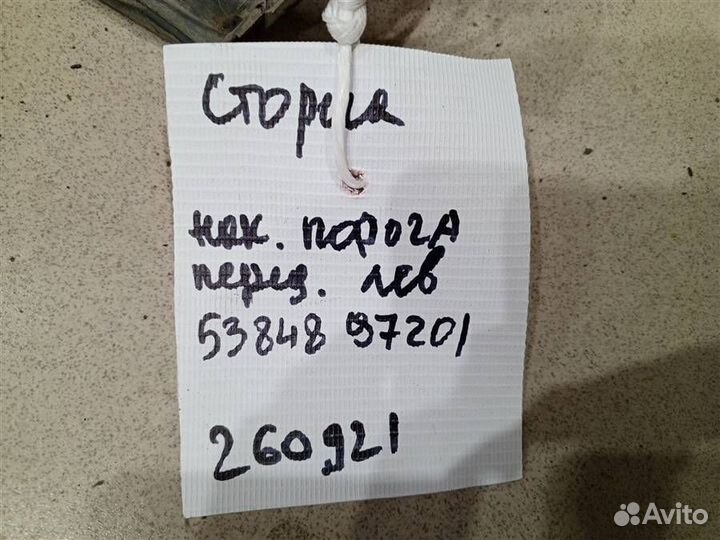 Сториа
нак. порога
перед. лев
53848 97201
260921
Avito